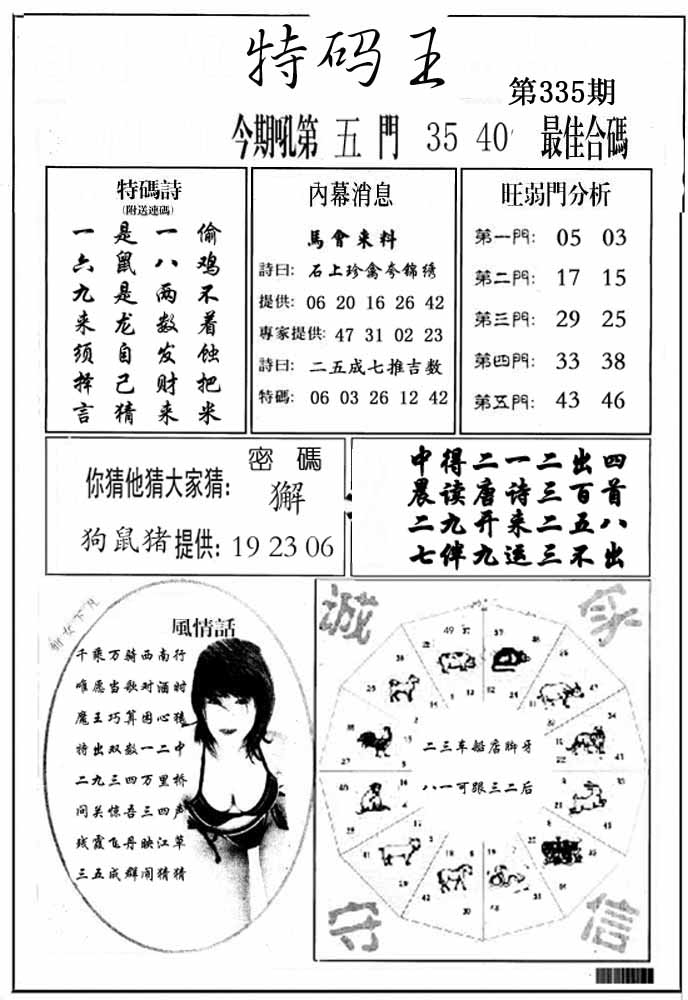 特码王
第335期
今期吼第 五 門 35 40 最佳合碼
特碼詩
(附送連碼)
一是一偷
六鼠八鸡
九是两不
来龙数着
须自发蚀
择己财把
言猜来米
內幕消息
馬會来料
詩曰: 石上珍禽夸錦绣
提供: 06 20 16 26 42
專家提供: 47 31 02 23
詩曰: 二五成七推吉数
特碼: 06 03 26 12 42
旺弱門分析
第一門: 05 03
第二門: 17 15
第三門: 29 25
第四門: 33 38
第五門: 43 46
密碼
你猜他猜大家猜: 獬
狗鼠猪提供: 19 23 06
中得二一二出四
晨读唐诗三百首
二九开来二五八
七伴九运三不出
風情話
千乘万骑西南行
唯愿当歌对酒时
魔王巧算困心猿
特出双数一二中
二九三四万里桥
间关惊吾三四声
残霞飞丹映江草
三五成群闹猜猜
诚
家
49 37
二三车船店脚牙
八一可跟三二后
守
信